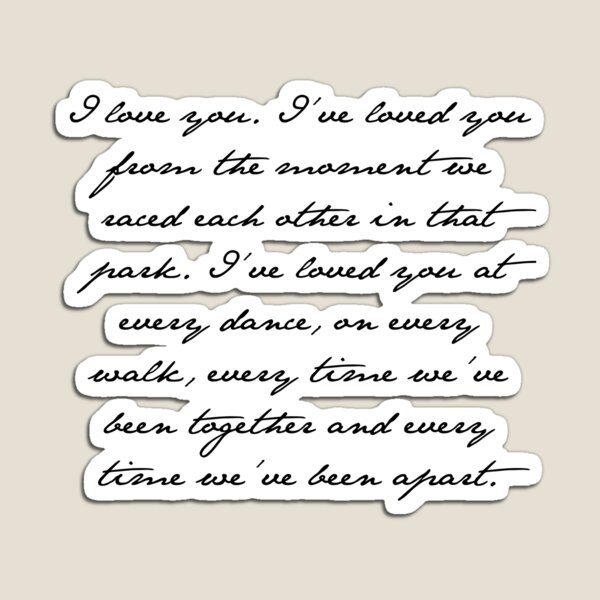 I love you. I've loved you
from the moment we
raced each other in that
park. I've loved you at
every dance, on every
walk, every time we've
been together and every
time we've been apart.